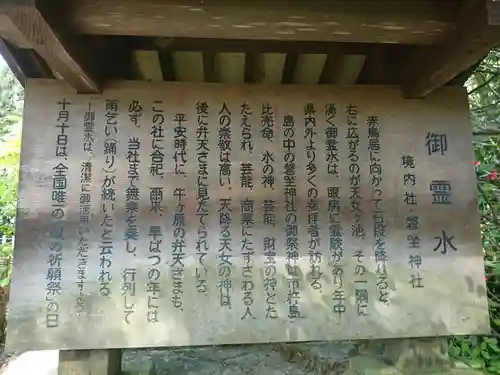 御霊水
境内社 磐坐神社
赤鳥居に向かって石段を降りると
右に広がるのが天女ヶ池、その一隅に
湧く御霊水は、眼病に霊験があり年中
県内外より多くの参拝者が訪れる。
島の中の磐坐神社の御祭神は市杵島
比売命、水の神、芸能、財宝の神とた
たえられ、芸能、商業にたずさわる人
人の崇敬は高い、天降る天女の神は、
後に弁天さまに見たてられている。
平安時代に、牛ヶ原の弁天さまも、
この社に合祀、爾来、旱ばつの年には
必ず、当社まで舞楽を奏し、行列して
雨乞い(踊り)が続いたと云われる
―御霊水は、清潔に御活用いただきますよう―
十月十日は、全国唯一の「眼の祈願祭」の日